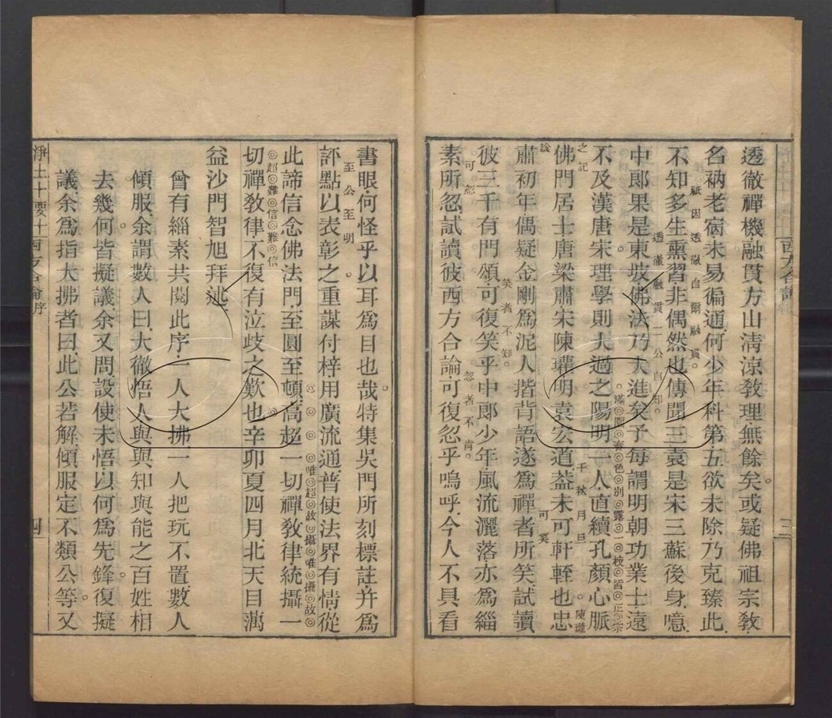 透徹禪機融貫方山清涼教理無餘矣或疑佛祖宗教
名衲老宿未易徧通何少年科第五欲未除乃克臻此
祇因透徹自爾融貫
不知多生熏習非偶然也傳聞三袁是宋三蘇後身噫
透徹融貫一公自印
中郎果是東坡佛法乃大進矣予每謂明朝功業士遠
不及漢唐宋理學則大過之陽明一人直續孔顏心脈
佛門居士唐梁肅宋陳瓘明袁宏道蓋未可軒輊也忠
之記
千秋月旦
陳瓘
肅初年偶疑金剛爲泥人揩背語遂爲禪者所笑試讀
可笑
彼三千有門頌可復笑乎中郎少年風流灑落亦爲緇
笑者不知
素所忽試讀彼西方合論可復忽乎嗚呼今人不具看
可忽
忽者不肯
書眼何怪乎以耳爲目也哉特集吳門所刻標註并爲
評點以表彰之重謀付梓用廣流通普使法界有情從
至公至明
此諦信念佛法門至圓至頓高超一切禪教律統攝一
唯超故攝唯攝故
切禪教律不復有泣歧之歎也辛卯夏四月北天目蕅
超難信難信
益沙門智旭拜述
曾有緇素共閱此序一人大拂一人把玩不置數人
傾服余謂數人曰大徹悟人與與知與能之百姓相
去幾何皆擬議余又問設使未悟以何爲先鋒復擬
議余爲指大拂者曰此公若解傾服定不類公等又
淨土十要十
西方合論序
四
西方合論
三